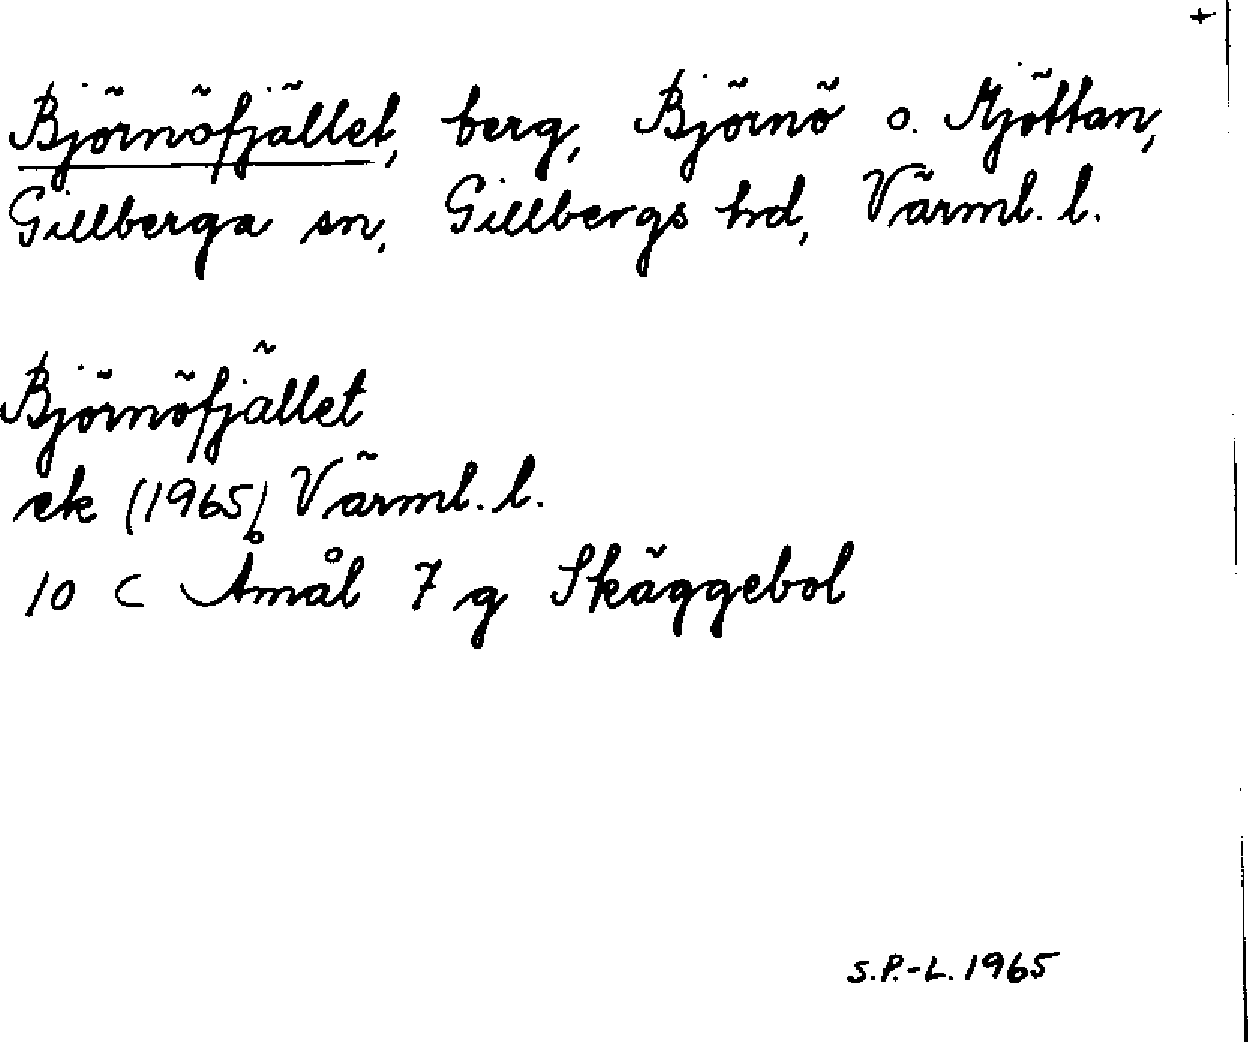 +
Björnöfjället, berg, Björnö o. Mjöttan,
Gillberga sn, Gillbergs hd, Värml. l.
Björnöfjället
ek (1965) Värml. l.
10 C Åmål 7 g Skäggebol
S.P.-L. 1965